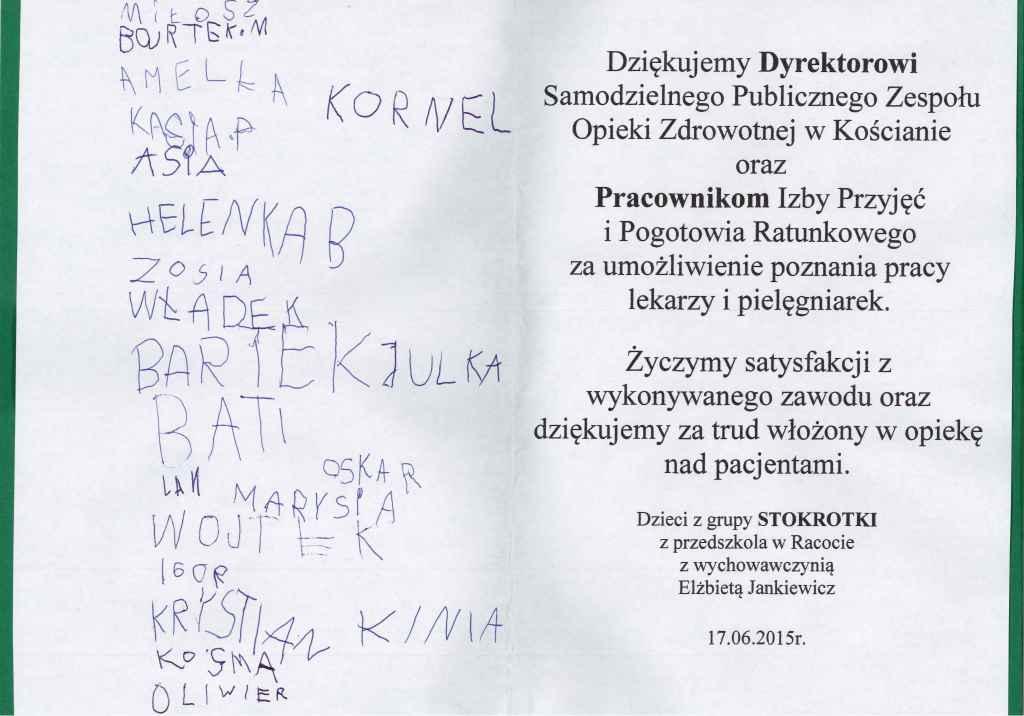 MIŁOSZ
BARTEK.M
AMELKA
KORNEL
KASIA.P
ASIA
HELENKA B
ZOSIA
WŁADEK
BARTEK JULKA
BATI
OSKAR
JAN
MARYSIA
WOJTEK
IGOR
KRYSTIAN KINIA
KOSMA
OLIWIER
Dziękujemy Dyrektorowi
Samodzielnego Publicznego Zespołu
Opieki Zdrowotnej w Kościanie
oraz
Pracownikom Izby Przyjęć
i Pogotowia Ratunkowego
za umożliwienie poznania pracy
lekarzy i pielęgniarek.
Życzymy satysfakcji z
wykonywanego zawodu oraz
dziękujemy za trud włożony w opiekę
nad pacjentami.
Dzieci z grupy STOKROTKI
z przedszkola w Racocie
z wychowawczynią
Elżbietą Jankiewicz
17.06.2015r.